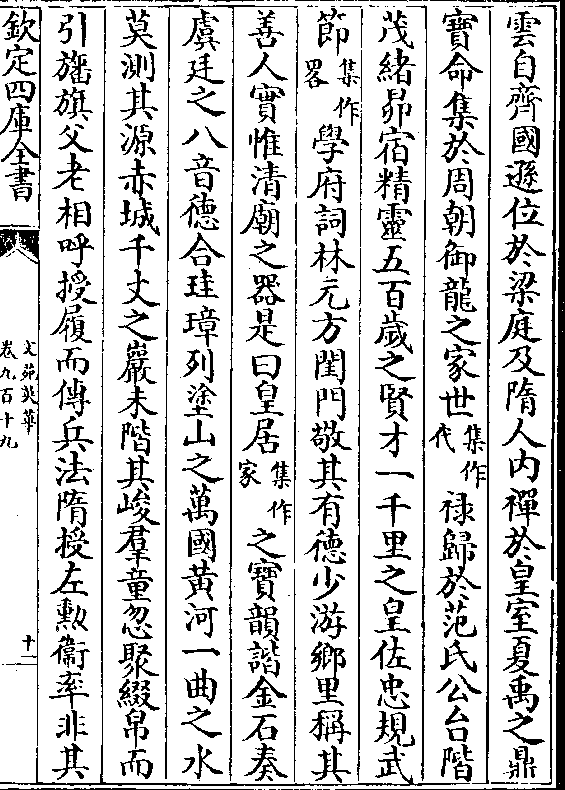 雲自齊國遜位於梁庭及隋人内禪於皇室夏禹之鼎
寳命集於周朝御龍之家世集作代禄歸於范氏公台階
茂緒昴宿精靈五百歲之賢才一千里之皇佐忠規武
節集作畧學府詞林元方閨門敬其有德少游鄉里稱其
善人實惟清廟之器是曰皇居集作家之寳韻諧金石奏
虞廷之八音德合珪璋列塗山之萬國黄河一曲之水
莫測其源赤城千丈之巖未階其峻羣童忽聚綴帛而
引旛旗父老相呼授履而傳兵法隋授左勲衞率非其
欽定四庫全書
文苑英華
卷九百十九
十一